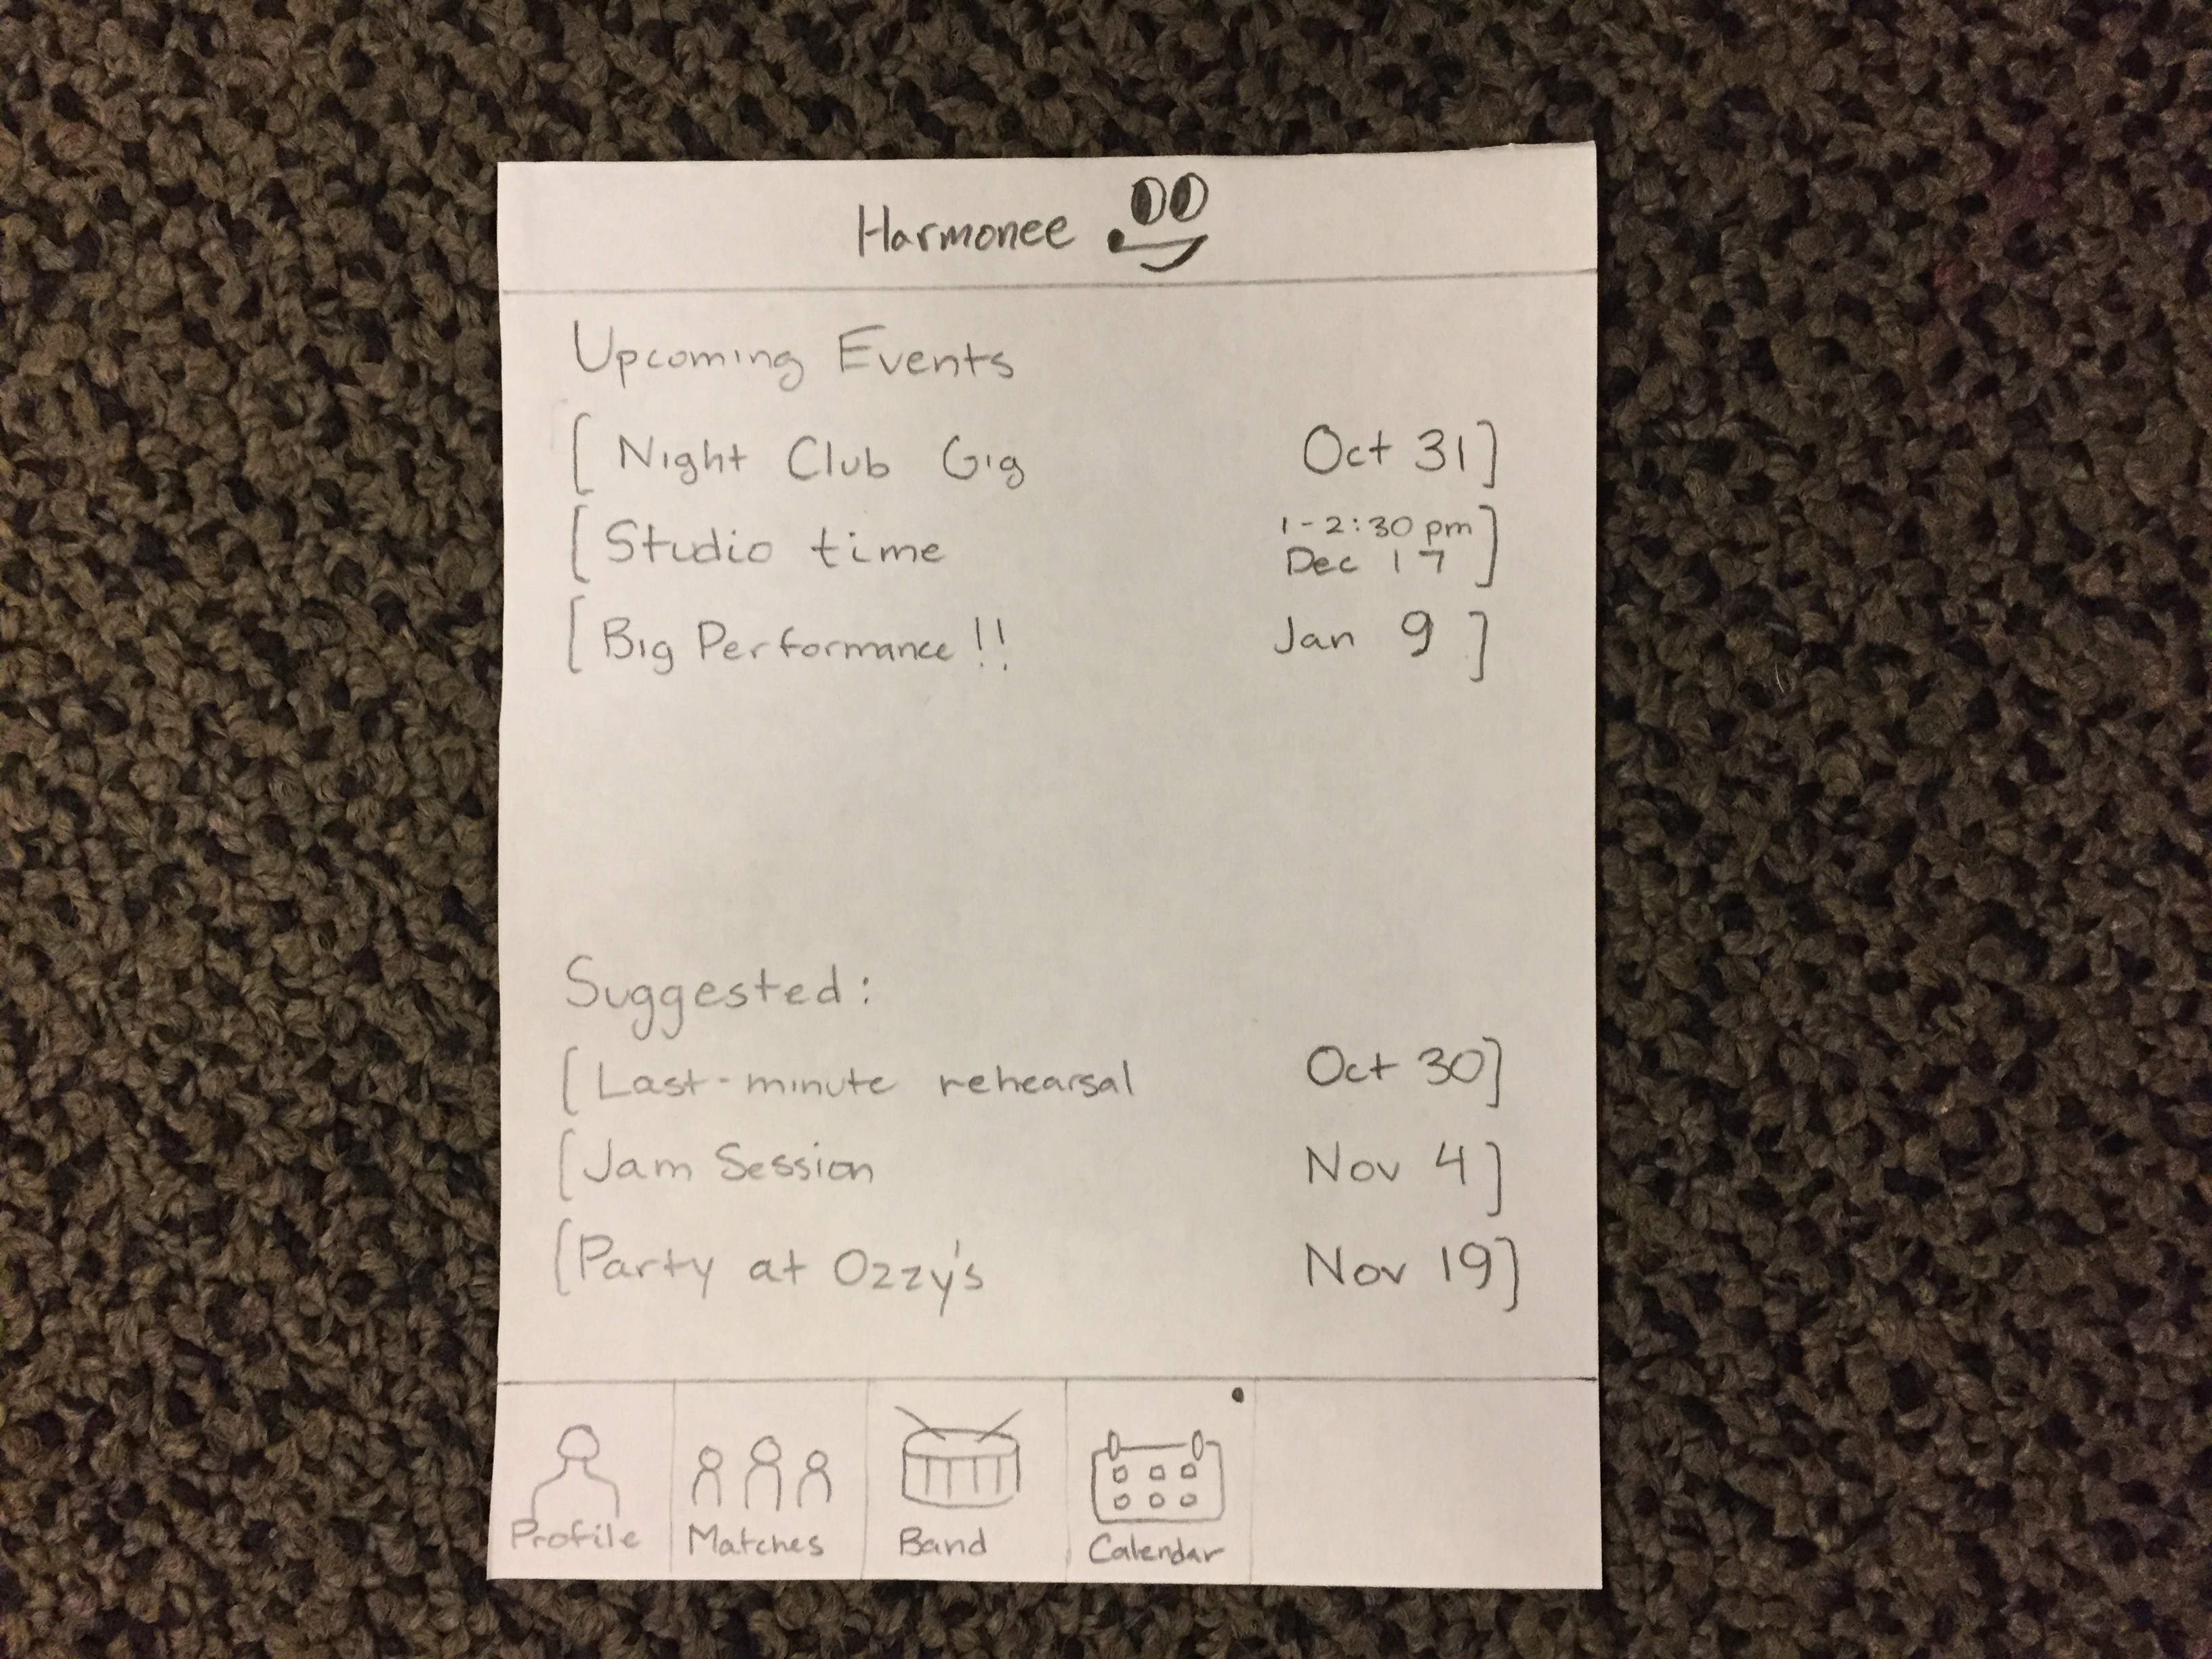 Harmonee
Upcoming Events
[ Night Club Gig Oct 31 ]
[ Studio time 1-2:30 pm Dec 17 ]
[ Big Performance!! Jan 9 ]
Suggested:
[ Last-minute rehearsal Oct 30 ]
[ Jam Session Nov 4 ]
[ Party at Ozzy's Nov 19 ]
Profile Matches Band Calendar